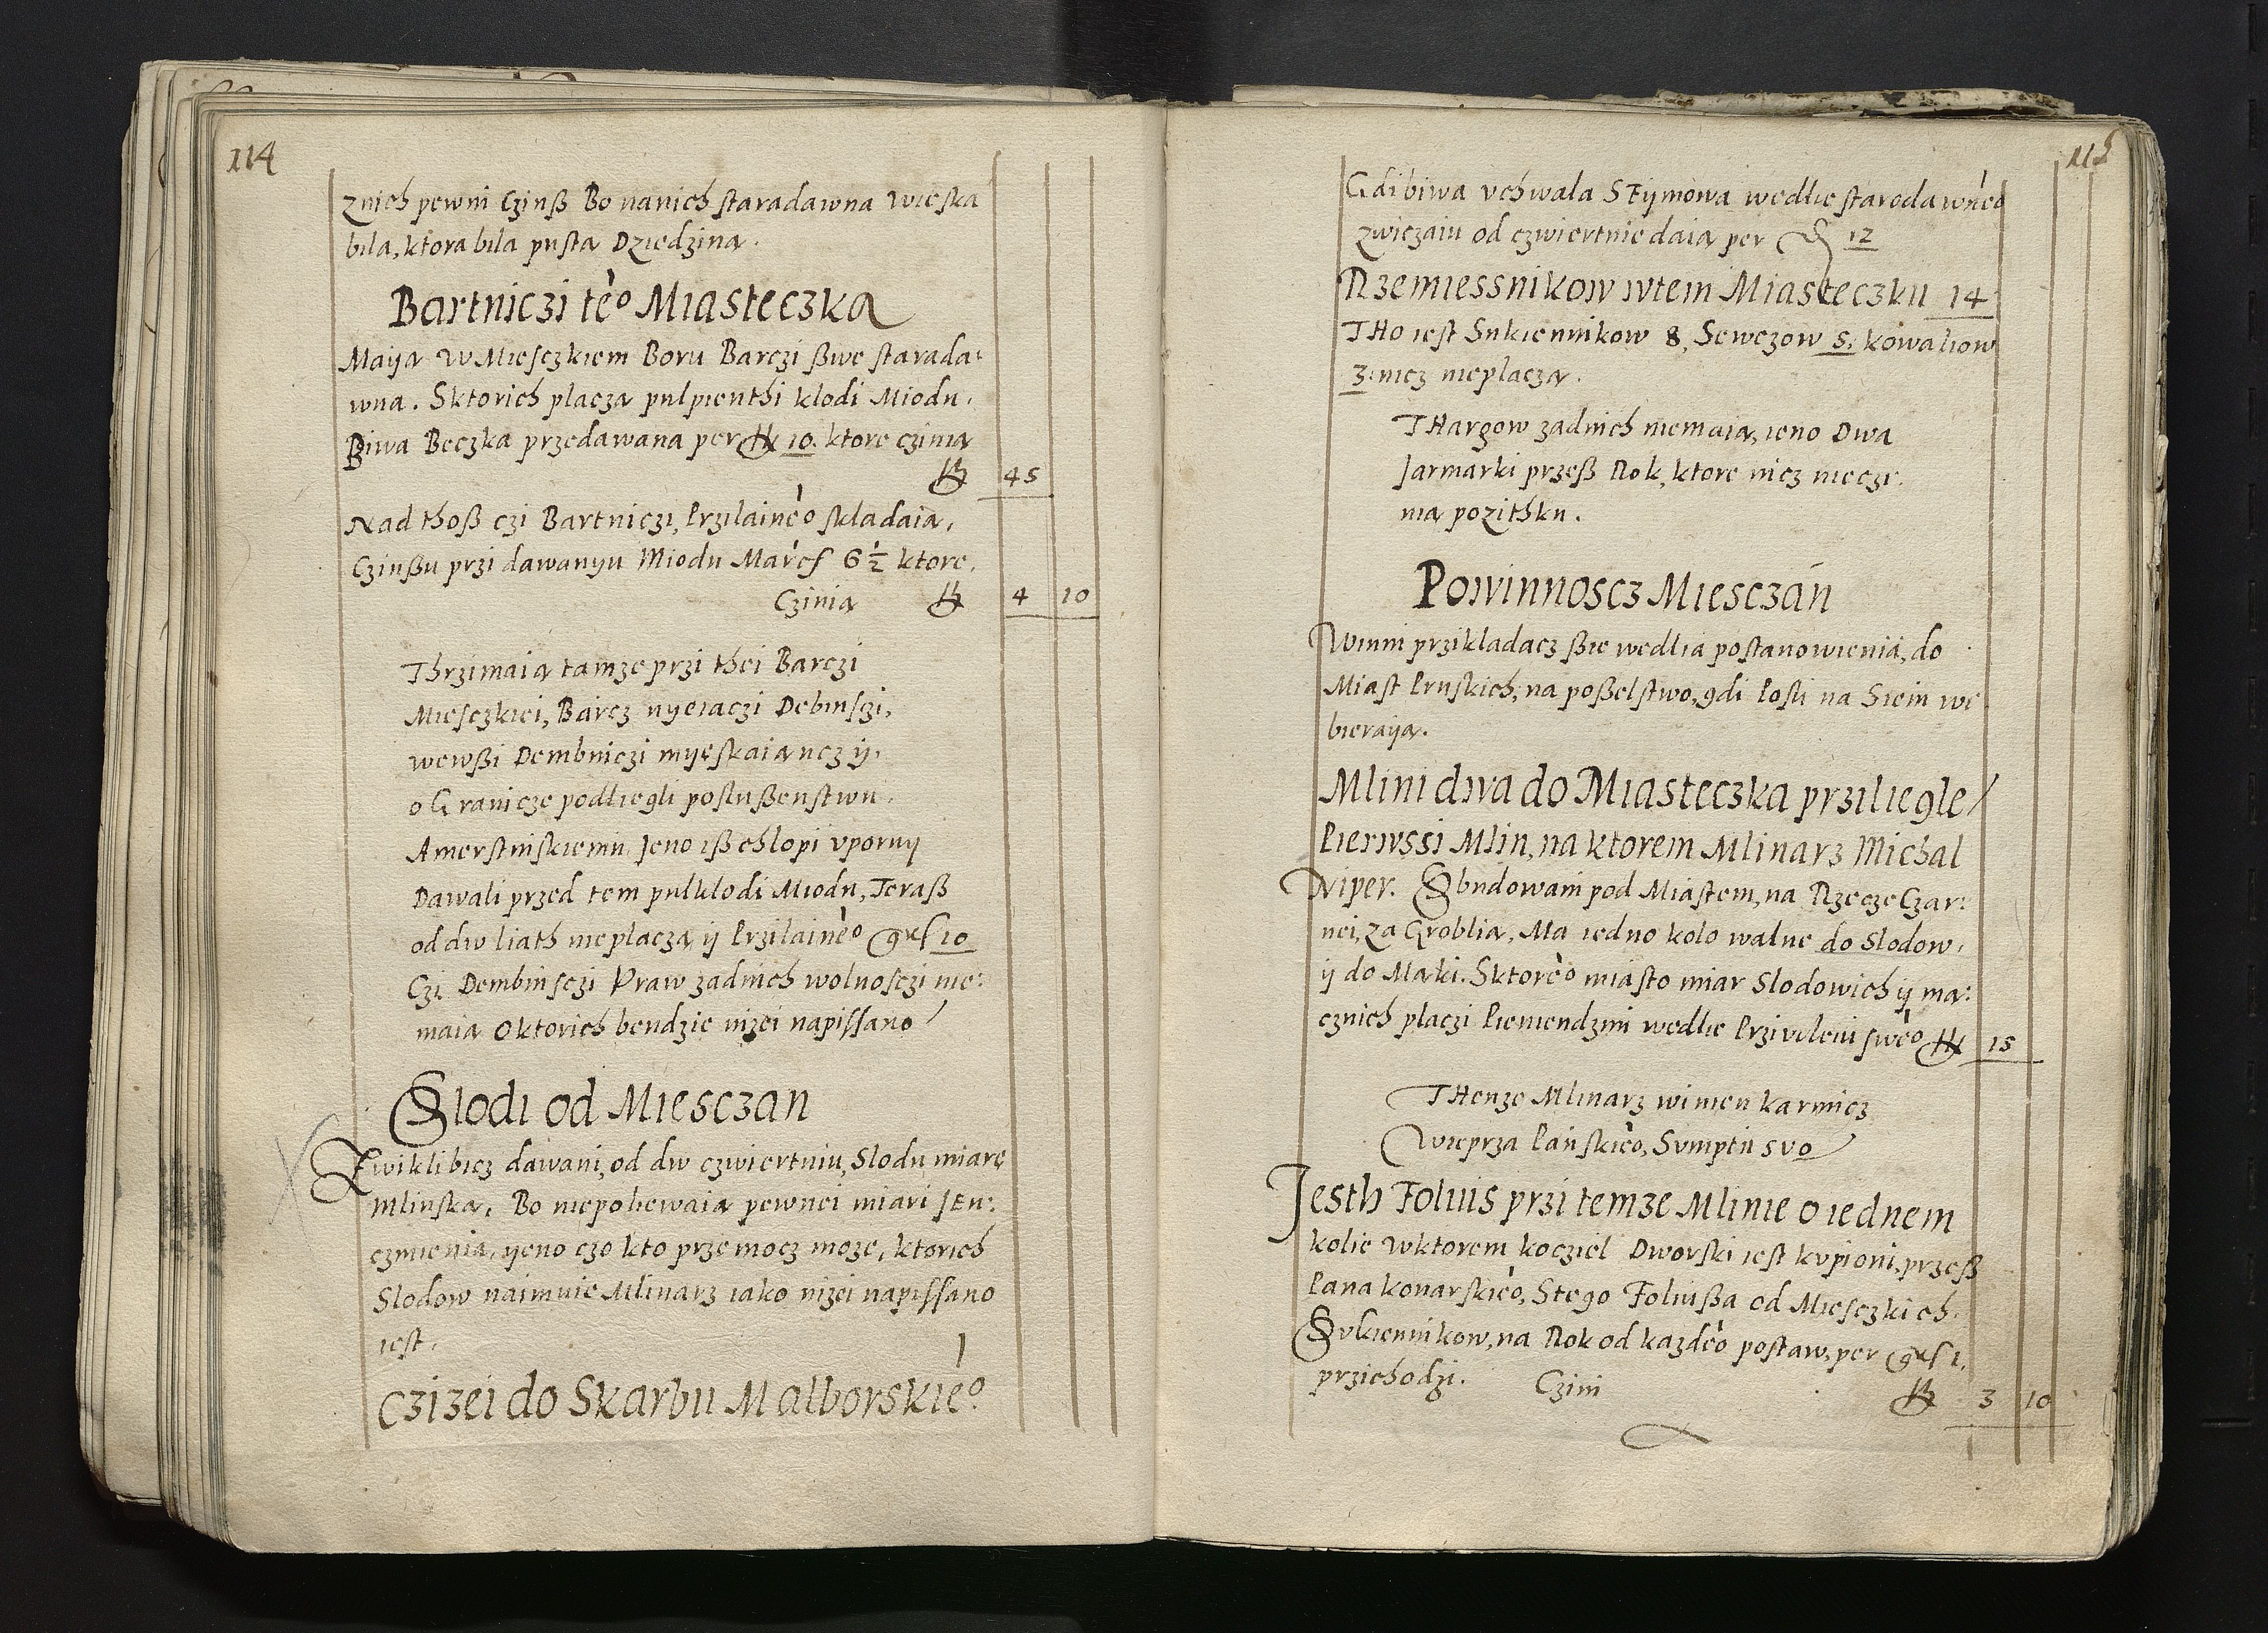 114
znich pewni Czinß Bo nanich staradawna wieska
bila, ktora bila pusta Dziedzina.
Bartniczi teo Miasteczka
Maija w Miesczkiem Boru Barczi ßwe starada-
wna. Sktorich placza pulpienthi klodi Miodu.
Biwa Beczka przedawana per 10. ktore czinia
45
Nad thoß czi Bartniczi, Przilaineo skladaia,
Czinßu przi dawanyu Miodu Marcs 6 ½ ktore.
Czinia 4 10
Thrzimaia tamze przi thei Barczi
Miesczkiei, Barcz nyeiaczi Debinsczi,
wewßi Dembniczi myeskaia ncz ij.
o Granicze podliegli poslußenstwu.
Amerstinskiemu Jeno iß chlopi vporny
Dawali przed tem pulklodi Miodu, Teraß
od dw liath nieplacza ij Przilaineo gros 10
Czi Dembinsczi Praw zadnich wolnosczi nie:
maia Oktorich bendzie nizei napissano
Slodi od Miesczan
Zwikli bicz dawani, od dw czwiertniu, Slodu miare
Mlinska, Bo niepoliewaia pewnei miari JEn:
czmienia, ijeno czo kto przemocz moze, ktorich
Slodow naimuie Mlinarz iako nizei napissano
iest.
Czizei do Skarbu Malborskieo
115
Gdi biwa vchwala SEijmowa wedlie starodawneo
zwiczaiu od czwiertnie daia per 12
Rzemiessnikow wtem Miasteczku 14
THo iest Sukiennikow 8, Sewczow 5. kowaliow
3. nicz nieplacza.
THargow zadnich niemaia, ieno Dwa
Jarmarki przeß Rok, ktore nicz nieczi-
nia pozithku.
Powinnoscz Miesczan
Winni przikladacz ßie wedlia postanowienia, do
Miast Pruskich, na poßelstwo, gdi Posli na Sieim wi
bieraija.
Mlini dwa do Miasteczka prziliegle
Pierwssi Mlin, na ktorem Mlinarz Michal
Wiper. Sbudowani pod Miastem, na Rzecze Czar:
nei, za Groblia, Ma iedno kolo walne do Slodow,
ij do Maki. Sktoreo miasto miar Slodowich ij ma:
cznich placzi Pieniendzmi wedlie Przivileiu sweo 15
THenze Mlinarz winien karmicz
wieprza Panskieo, Svmptu svo
Jesth Foluis przi temze Mlinie o iednem
kolie wktorem kocziel Dworski iest kvpioni, przeß
Pana konarskieo, Stego Foliußa od Miesczkich
Svkiennikow, na Rok od kazdeo postaw, per gros 1.
przichodzi. Czini 3 10